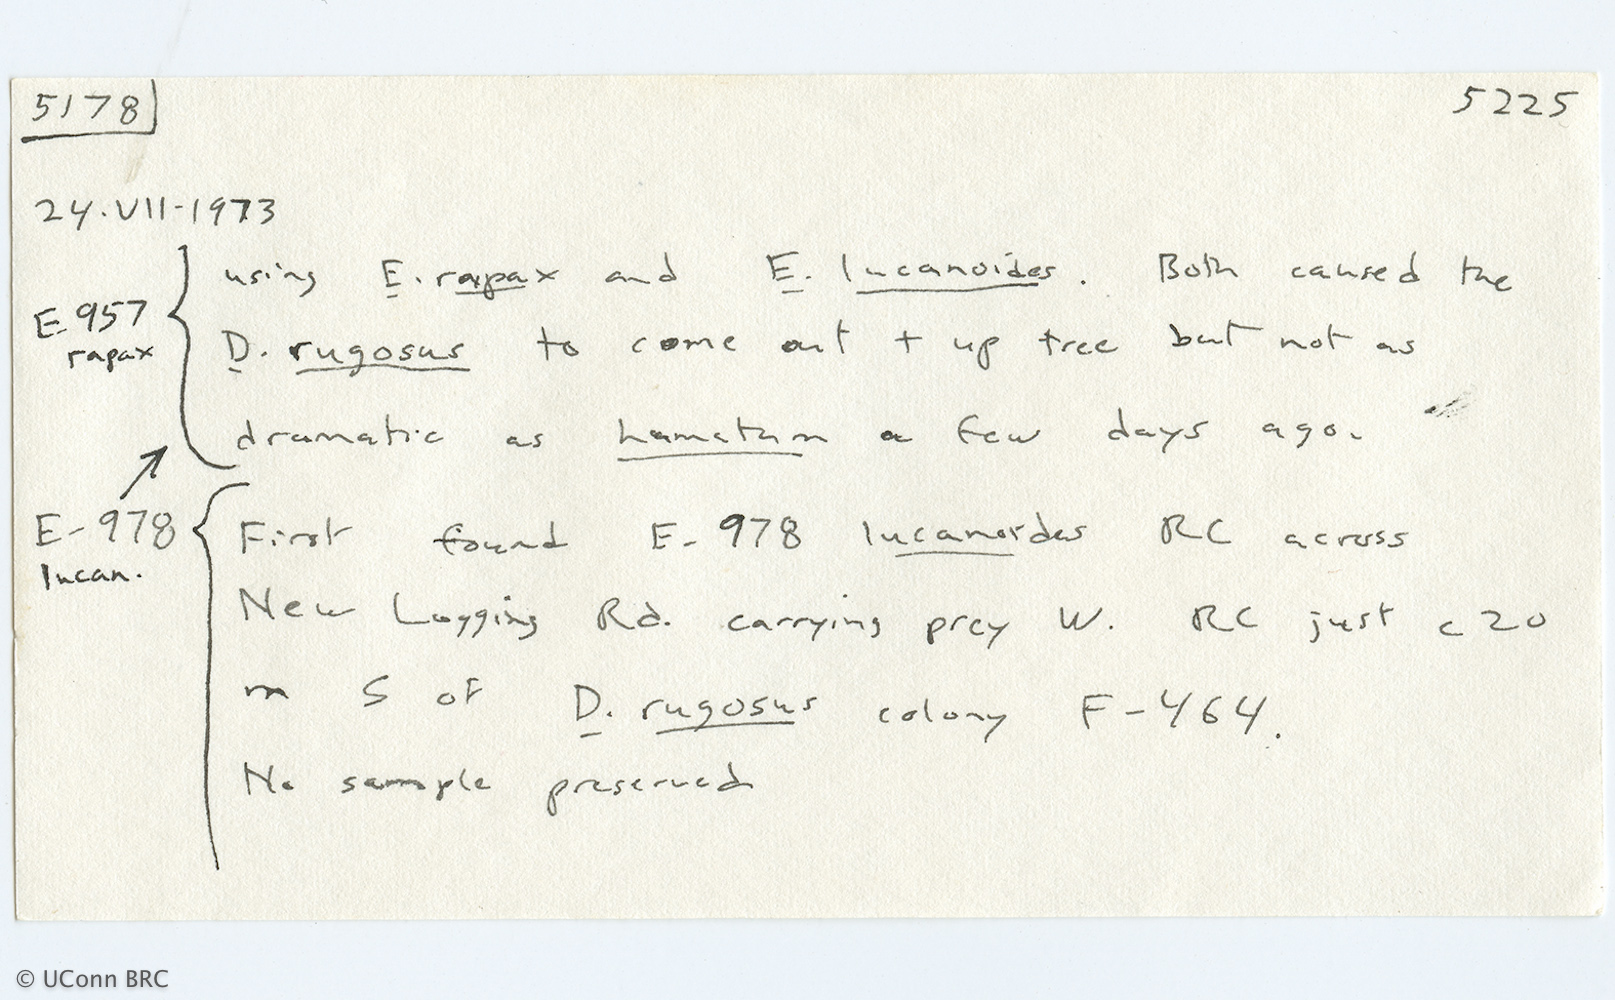 5178
5225
24.VII-1973
E-957
rapax
using E. rapax and E. lucanoides. Both caused the
D. rugosus to come out + up tree but not as
dramatic as hamatum a few days ago.
E-978
lucan.
First found E-978 lucanoides RC across
New Logging Rd. carrying prey W. RC just c 20
m S of D. rugosus colony F-464.
No sample preserved
© UConn BRC